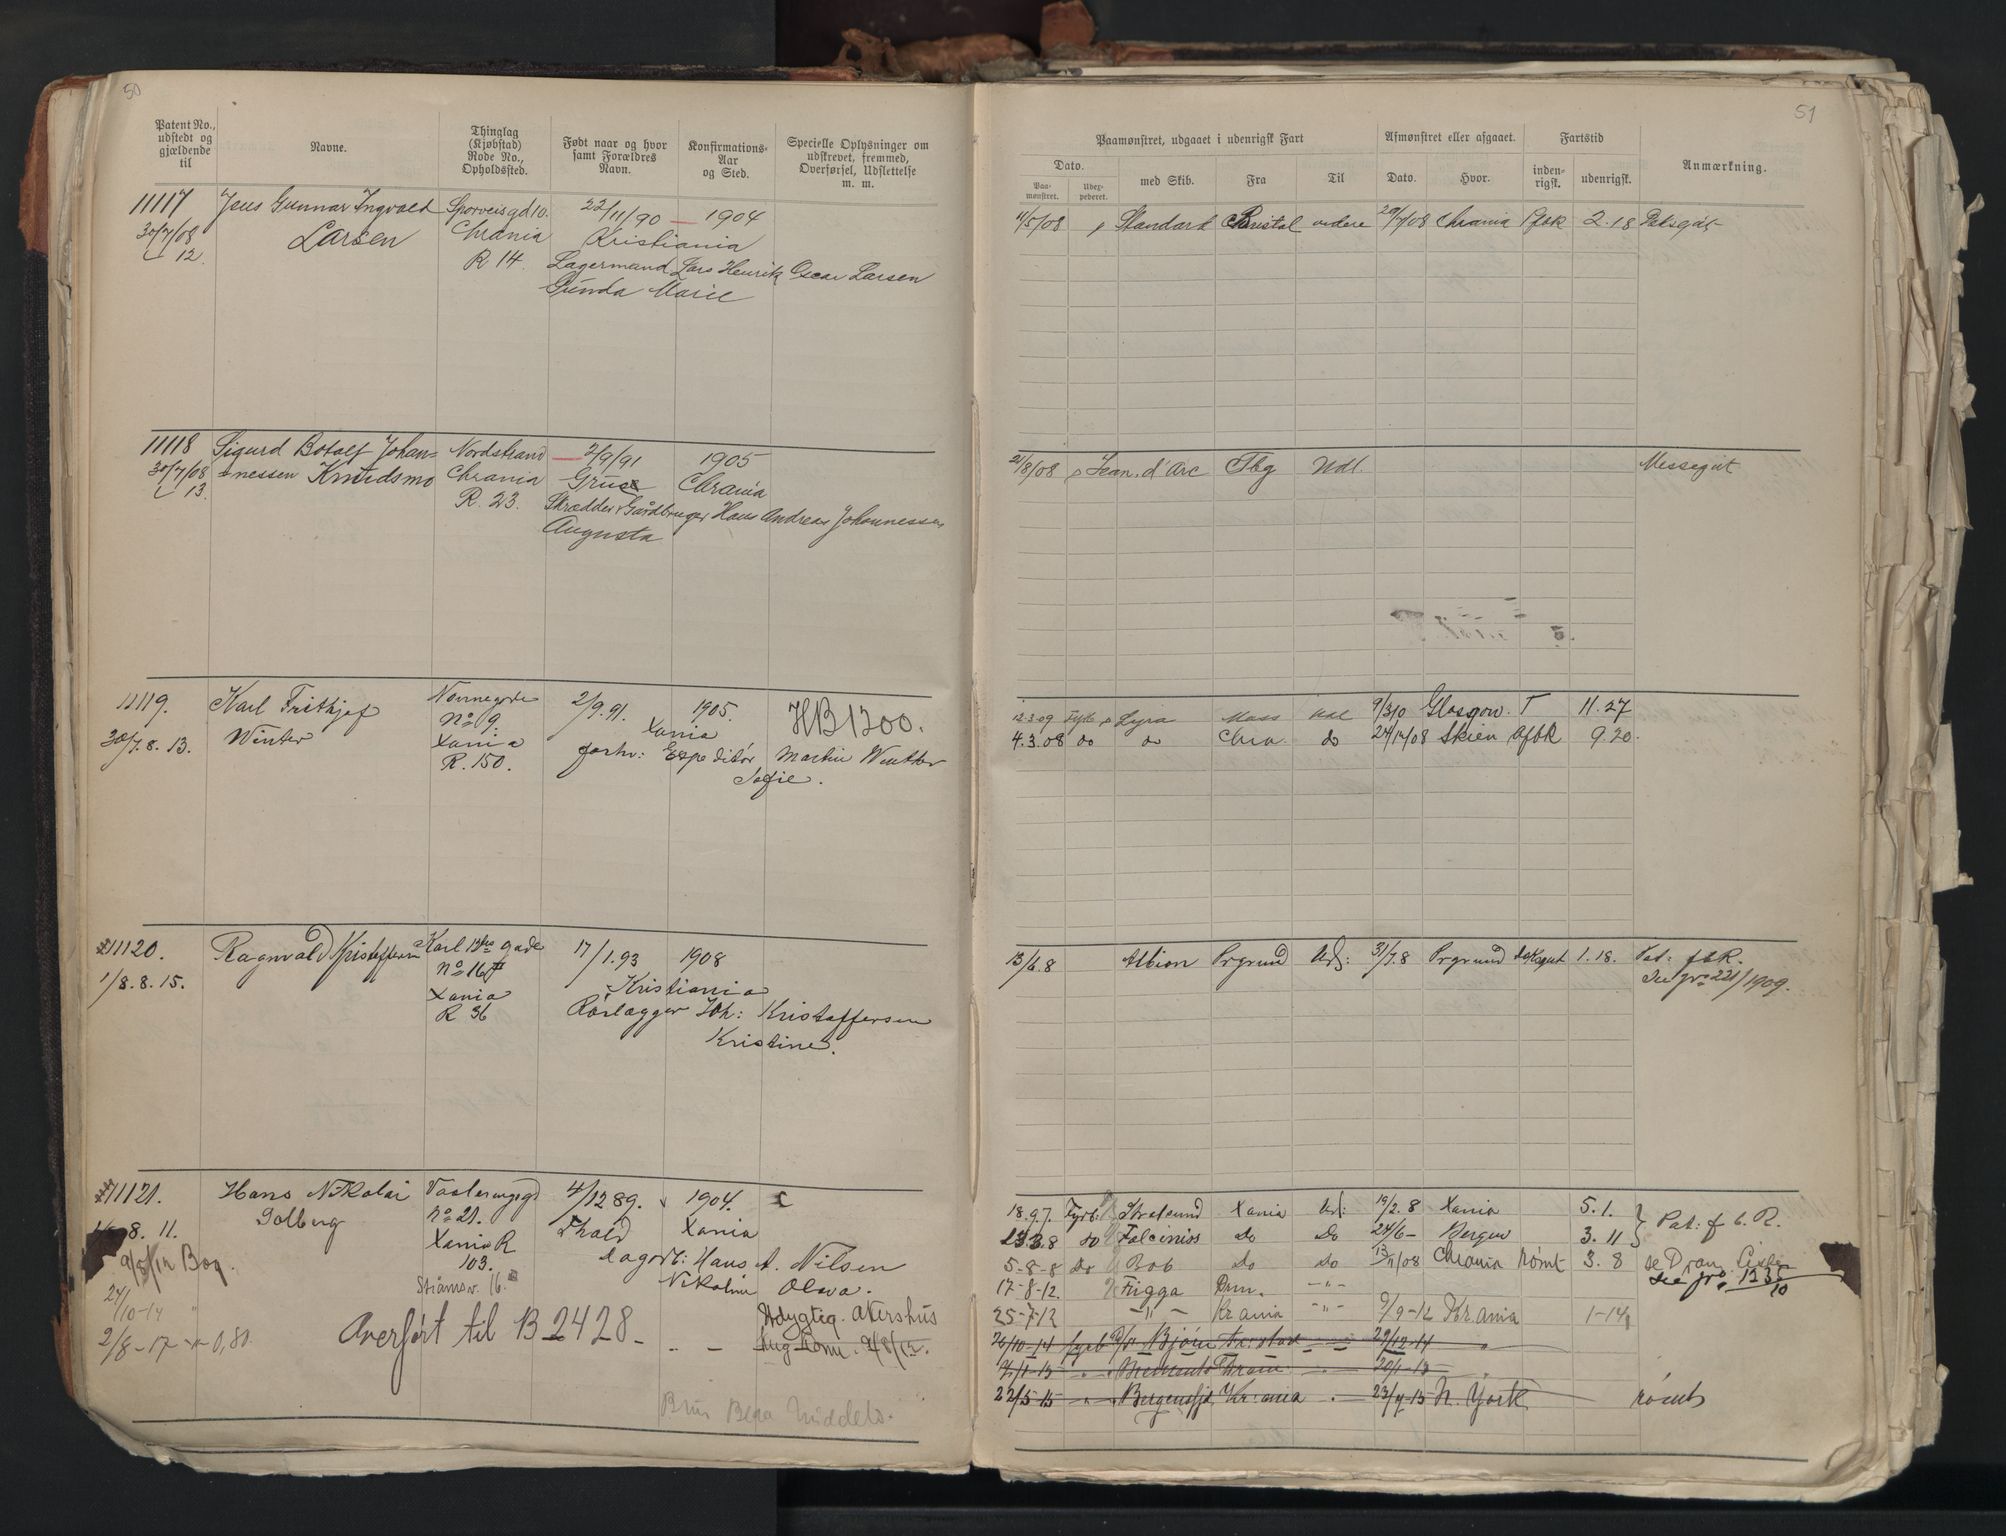 50
Patent No., udstedt og gjældende til
Navne.
Thinglag (Kjøbstad) Rode No., Opholdssted.
Født naar og hvor samt Forældres Navn.
Konfirmations-Aar og Sted.
Specielle Oplysninger om udskrevet, fremmed, Overførsel, Udslettelse m. m.
11117 Jens Gunnar Ingvald Sporveisgd 10. 22/11/90 — 1904
30/7/08 Larsen Chrania Kristiania
12. R 14. Lagermand Lars Henrik Oscar Larsen
Gunda Marie
11118 Sigurd Botolf Johan= Nordstrand — 2/9/91 1905
30/7/08 nessen Knudsmo Chrania Grue Chrania
13. R. 23. Skrædder & Gårdbruger Hans Andreas Johannessen
Augusta
11119. Karl Frithjof No 9. 2/9.91. 1905. HB 1200.
30/7.8.13. Winter Xania Xania
R. 150. forhv: Expeditør Martin Winther
Sofie.
11120. Ragnvald Kristoffersen Karl 12tes gade 17/1.93 1908
1/8.8.15. No 16 Kristiania
Xania Rørlægger Joh: Kristoffersen
R 36 Kristine.
11121. Hans Nikolai No 21. 4/12 89. 1904.
8.11. Solberg Xania R Xania
9/5/12 Bog. 103. dagarb: Hans A. Nilsen
24/10-14 Nikoline Olava.
2/8-17 0,80. Overført til B 2428 - Udygtig. Akershus
51
Paamønstret, udgaaet i udenrigsk Fart
Afmønstret eller afgaaet.
Fartstid
Anmærkning.
Dato.
Paa-mønstret.
Udex-pederet.
med Skib.
Fra
Til
Dato.
Hvor.
inden-rigsk.
udenrigsk.
11/5/08 Standard Bristol videre 29/7/08 Chrania Afsk 2.18
21/8/08 Jean d'Arc Tbg Udl. Messegut
12.3.09 Fyrb Lyra Moss Udl 9/3 10 Glasgow. T 11.27
4.3.08 do do Chra. do 24/12/08 Skien Afsk 9.20.
13/6.8 Albion Prgrund Uds: 31/7.8 Prgrund Dæksgut 1.18. Pat: f s R.
See jr. 221/1909.
18.9.7. Fyrb: Stralsund Xania Ud: 19/2.8 Xania 5.1. Pat: f b. R.
23.3.8 do Falcinios do do 24/6 - Bergen 3.11
5-8-8 do Bob do do 13/11/08 Chrania rømt 3.8
17-8-12. Frigga Drm. -"-
25-7-12 -"- Kr.ania -"- 9/9-12 Kr.ania 1-14
26/10-14 fyrb Bjørn 29/12-14
20/1-15
22/5-15 " Bergensfjd. Kr:ania - 23/7-15 N. York rømt